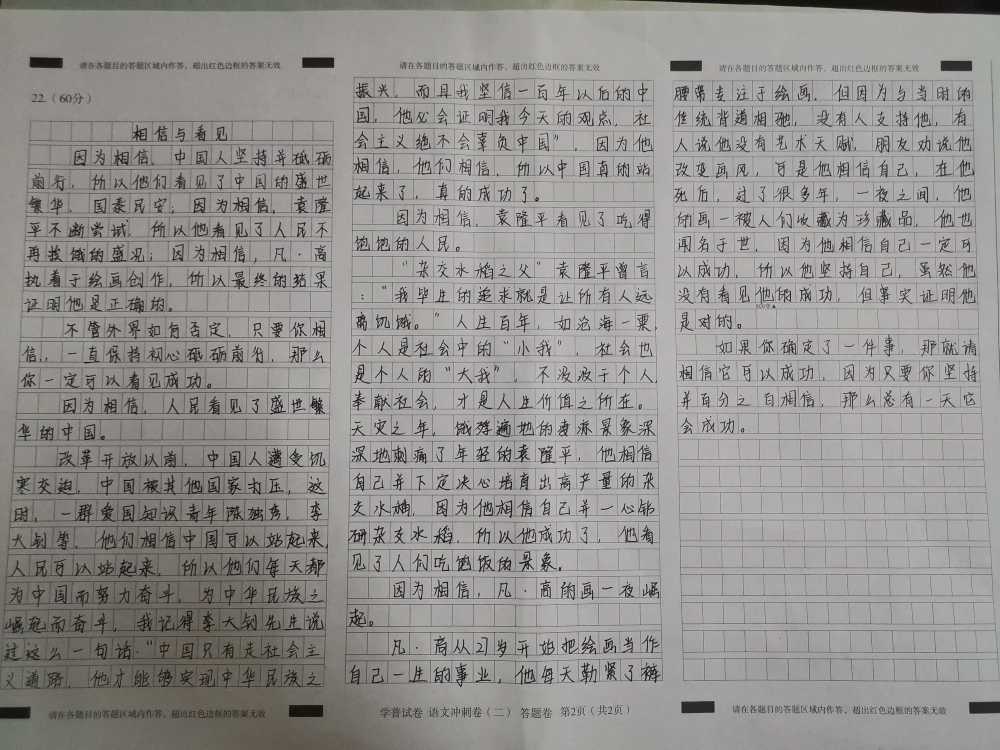 请在各题目的答题区域内作答，超出红色边框的答案无效
22.（60分）
相信与看见
因为相信，中国人坚持并砥砺
前行，所以他们看见了中国的盛世
繁华，国泰民安；因为相信，袁隆
平不断尝试，所以他看见了人民不
再挨饿的盛况；因为相信，凡·高
执着于绘画创作，所以最终的结果
证明他是正确的。
不管外界如何否定，只要你相
信，一直保持初心砥砺前行，那么
你一定可以看见成功。
因为相信，人民看见了盛世繁
华的中国。
改革开放以前，中国人遭受饥
寒交迫，中国被其他国家打压，这
时，一群爱国知识青年陈独秀，李
大钊等，他们相信中国可以站起来，
人民可以站起来，所以他们每天都
为中国而努力奋斗，为中华民族之
崛起而奋斗，我记得李大钊先生说
过这么一句话："中国只有走社会主
义道路，他才能够实现中华民族之
请在各题目的答题区域内作答，超出红色边框的答案无效
请在各题目的答题区域内作答，超出红色边框的答案无效
振兴，而且我坚信一百年以后的中
国，他必会证明我今天的观点，社
会主义绝不会辜负中国"，因为他
相信，他们相信，所以中国真的站
起来了，真的成功了。
因为相信，袁隆平看见了吃得
饱饱的人民。
"杂交水稻之父"袁隆平曾言
："我毕生的追求就是让所有人远
离饥饿。"人生百年，如沧海一粟，
个人是社会中的"小我"，社会也
是个人的"大我"，不汲汲于个人，
奉献社会，才是人生价值之所在。
天灾之年，饿殍遍地的凄凉景象深
深地刺痛了年轻的袁隆平，他相信
自己并下定决心培育出高产量的杂
交水稻，因为他相信自己并一心钻
研杂交水稻，所以他成功了，他看
见了人们吃饱饭的景象。
因为相信，凡·高的画一夜崛
起。
凡·高从27岁开始把绘画当作
自己一生的事业，他每天勒紧了裤
学普试卷 语文冲刺卷（二） 答题卷 第2页（共2页）
请在各题目的答题区域内作答，超出红色边框的答案无效
腰带专注于绘画，但因为与当时的
传统背道相驰，没有人支持他，有
人说他没有艺术天赋，朋友劝说他
改变画风，可是他相信自己，在他
死后，过了很多年，一夜之间，他
的画一被人们收藏为珍藏品，他也
闻名于世，因为他相信自己一定可
以成功，所以他坚持自己，虽然他
没有看见他的成功，但事实证明他
800字▲
是对的。
如果你确定了一件事，那就请
相信它可以成功，因为只要你坚持
并百分之百相信，那么总有一天它
会成功。
请在各题目的答题区域内作答，超出红色边框的答案无效